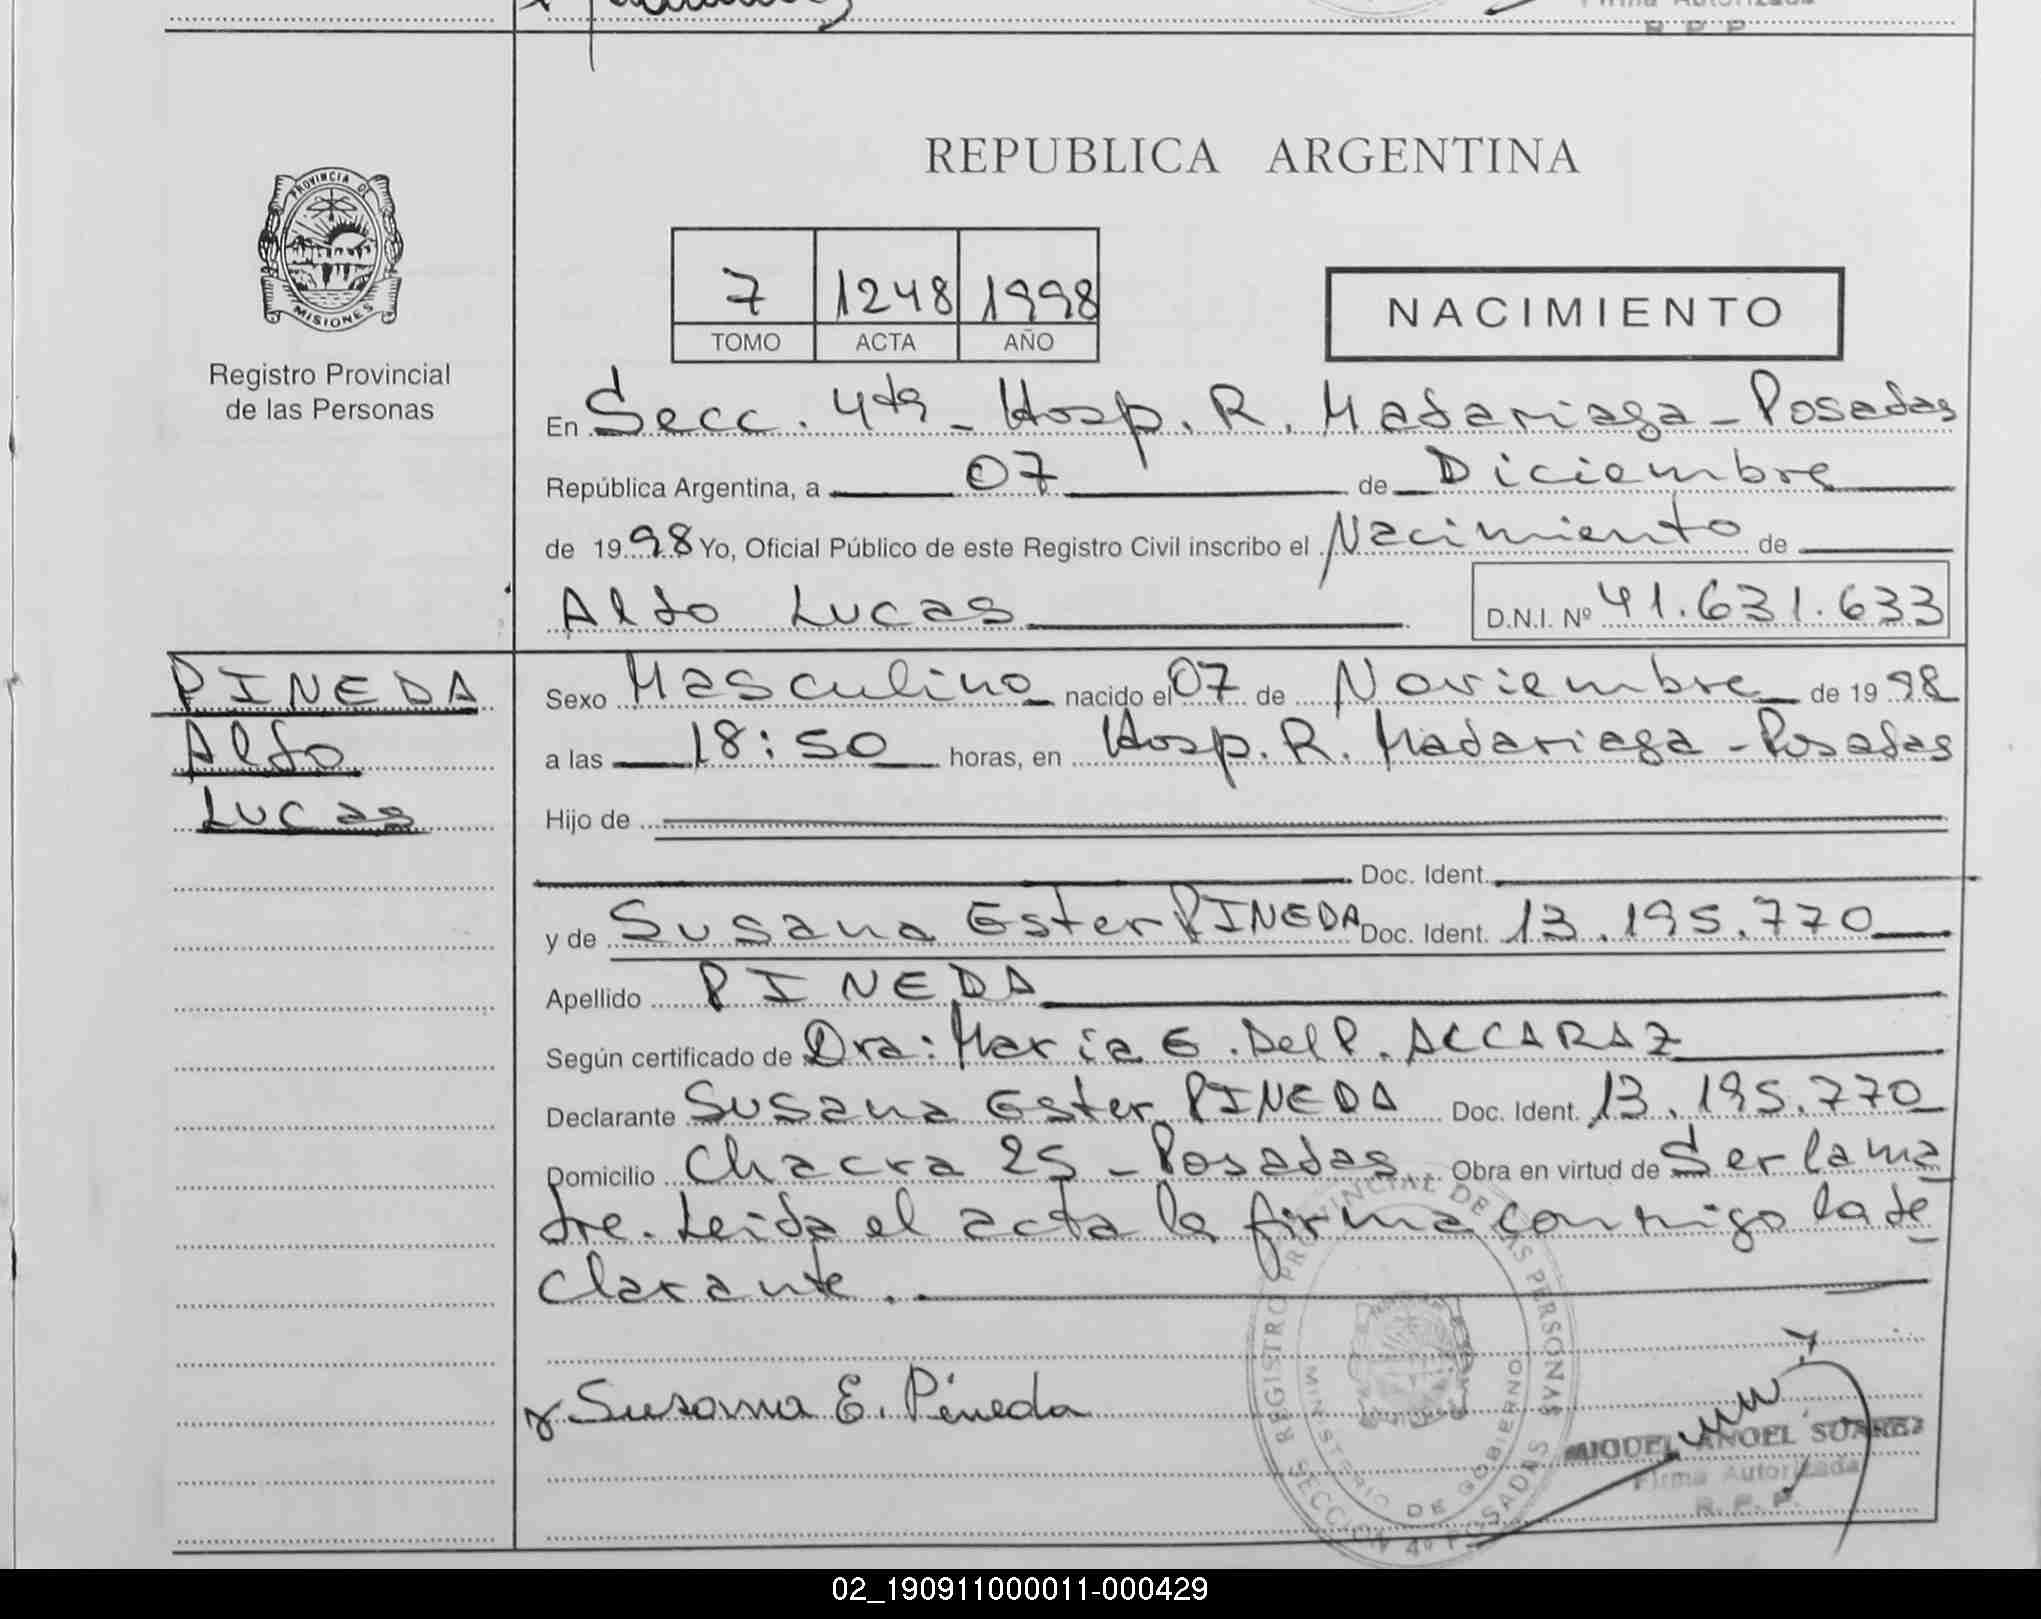 REPUBLICA ARGENTINA
PROVINCIA DE
MISIONES
Registro Provincial
de las Personas
7 1248 1998
TOMO ACTA AÑO
NACIMIENTO
En Secc. 4ta - Hosp. R. Madariaga - Posadas
República Argentina, a 07 de Diciembre
de 1998 Yo, Oficial Público de este Registro Civil inscribo el Nacimiento de
Aldo Lucas D.N.I. Nº 41.631.633
PINEDA
Aldo
Lucas
Sexo Masculino nacido el 07 de Noviembre de 1998
a las 18:50 horas, en Hosp. R. Madariaga - Posadas
Hijo de
Doc. Ident.
y de Susana Ester PINEDA Doc. Ident. 13.195.770
Apellido PINEDA
Según certificado de Dra: María E. Del P. ALCARAZ
Declarante Susana Ester PINEDA Doc. Ident. 13.195.770
Domicilio Chacra 25 - Posadas Obra en virtud de Ser la ma
dre. Leida el acta la firma conmigo la de
clarante.
Susana E. Pineda
REGISTRO PROVINCIAL DE LAS PERSONAS
MINISTERIO DE GOBIERNO
SECCION 4º POSADAS
MIGUEL ANGEL SUAREZ
Firma Autorizada
R. P. P.
02_190911000011-000429